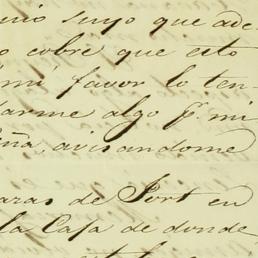 suyo que ade-
cobre que esto
mi favor lo ten-
darme algo p. mi
avisandome
varas de Port en
la Casa de donde